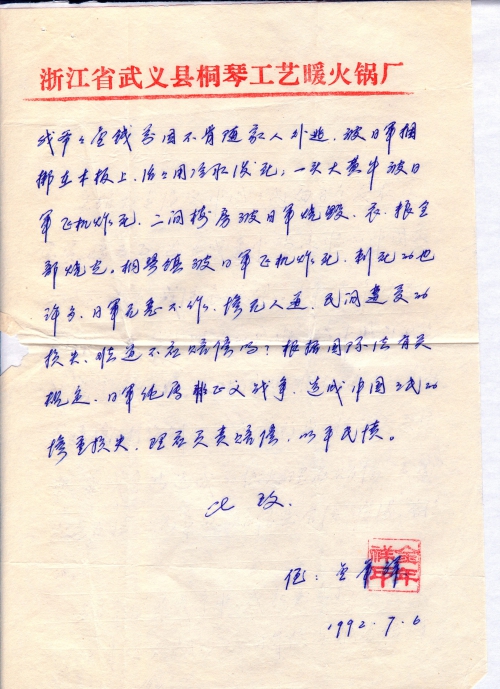 浙江省武义县桐琴工艺暖火锅厂
我爷爷金 因不肯随家人外逃、被日军捆
绑在木板上、活活用 死;一头大黄牛被日
军飞机炸死.二间楼房被日军烧毁、衣、粮全
部烧光.桐琴镇被日军飞机炸死.刺死的也
许多.日军无恶不作.惨无人道.民间遭受的
损失.难道不应赔偿吗?根据国际法有关
规定.日军纯属非正义战争.造成中国人民的
惨重损失.理应负责赔偿.以平民愤。
此致.
金年祥
金年祥印
1992.7.6